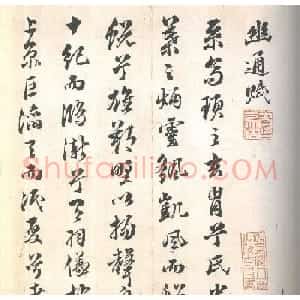 幽通賦
系高頊之玄胄兮氏中
葉之炳靈飖凱風而蟬
蛻兮雄朔野以揚聲
十紀而鴻漸兮有羽儀於
上京巨滔天而泯夏兮考